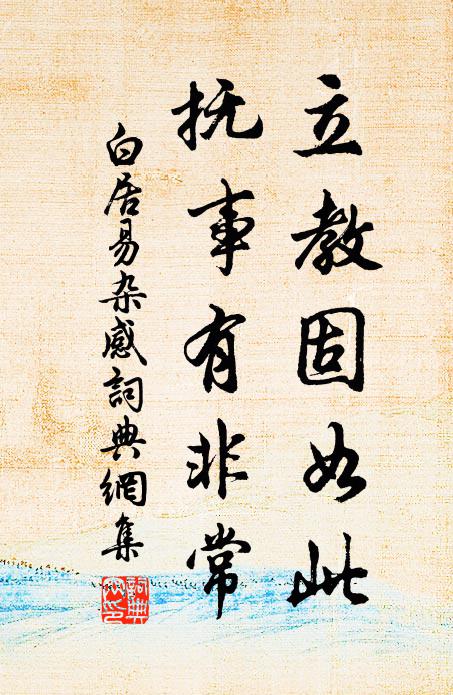 立教固如此
抚事有非常
白居易杂感詞典網集